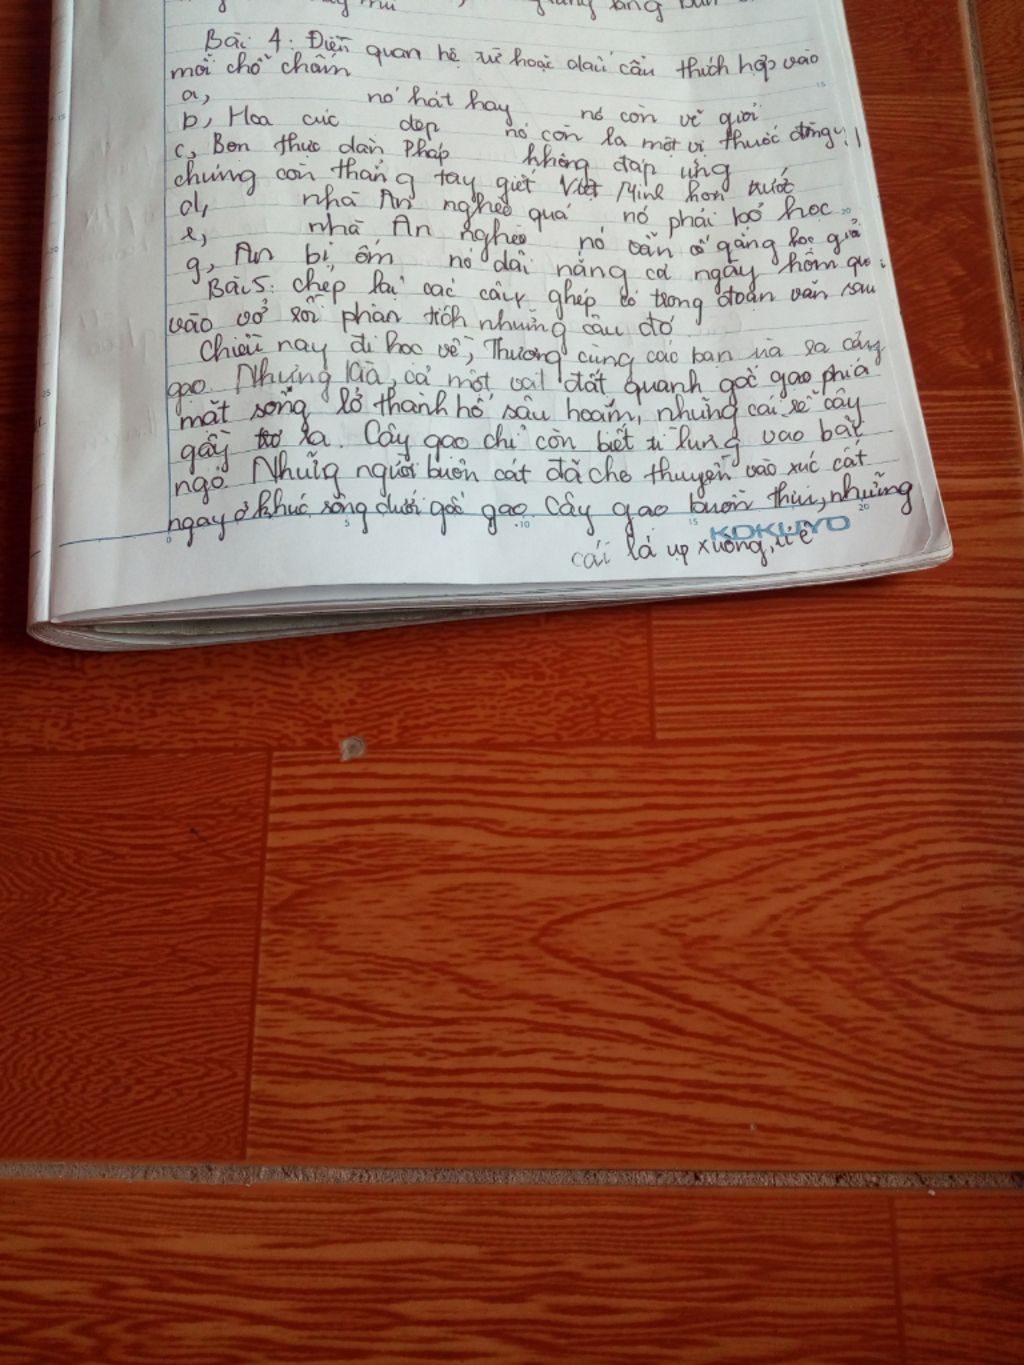 Bài 4: Điền quan hệ từ hoặc dấu câu thích hợp vào
mỗi chỗ chấm
a, nó hát hay nó còn vẽ giỏi
b, Hoa cúc đẹp nó còn là một vị thuốc đông y
c, Bọn thực dân Pháp không đáp ứng
chúng còn thẳng tay giết Việt Minh hơn trước
d, nhà An nghèo quá nó phải bỏ học
e, nhà An nghèo nó vẫn cố gắng học giỏi
g, An bị ốm nó dãi nắng cả ngày hôm qua
Bài 5: chép lại các câu ghép có trong đoạn văn sau
vào vở rồi phân tích những câu đó
Chiều nay đi học về, Thương cùng các bạn ùa ra cây
gạo. Nhưng kìa, cả một vạt đất quanh gốc gạo phía
mặt sông lở thành hố sâu hoắm, những cái rễ cây
gầy trơ ra. Cây gạo chỉ còn biết tì lưng vào bãi
ngô. Những người buôn cát đã cho thuyền vào xúc cát
ngay ở khúc sông dưới gốc gạo. Cây gạo buồn thiu, những
cái lá ụp xuống, ủ ê
KOKUYO